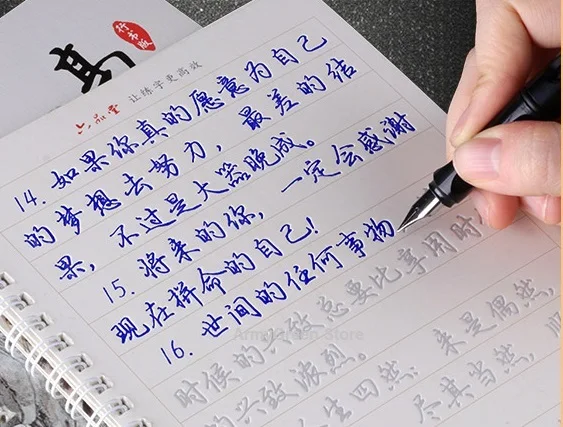 行书版
六品堂 让练字更高效
14. 如果你真的愿意为自己
的梦想去努力，最差的结
果，不过是大器晚成。
15. 将来的你，一定会感谢
现在拼命的自己！
16. 世间的任何事物
追求时候的兴致总要比享用时
的兴致浓烈。
人生四然：来是偶然，
尽其当然，顺